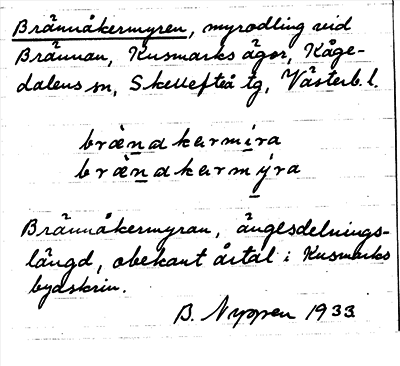 Brännåkermyren, myrodling vid
Brännan, Kusmarks ägor, Kåge-
dalens sn, Skellefteå tg, Västerb. l.
brändkermira
brändkermýra
Brännåkermyran, änglesdelnings-
längd, obekant årtal i Kusmarks
byaskrin.
B. Nyssen 1933